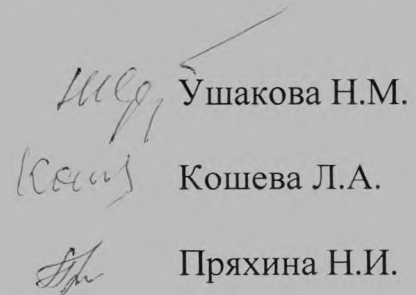 Ушакова Н.М.
Кошева Л.А.
Пряхина Н.И.